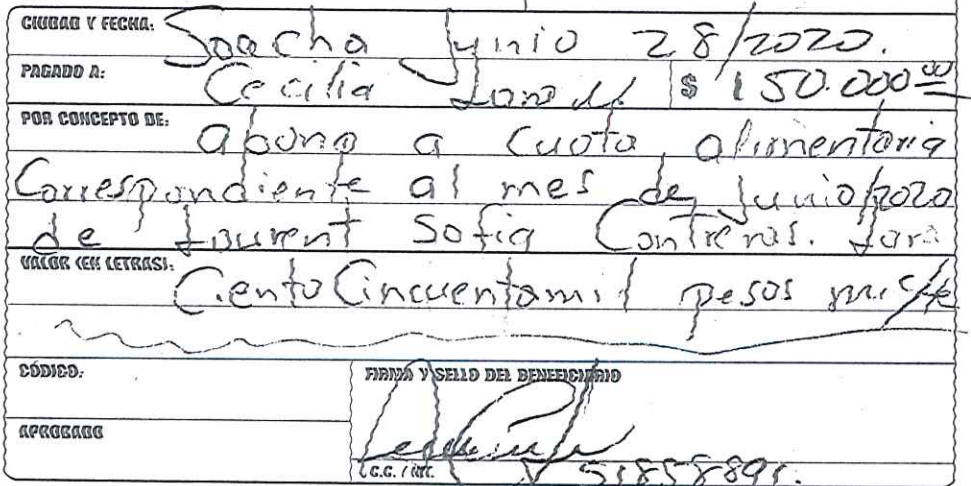 CIUDAD Y FECHA: Soacha Junio 28/2020.
PAGADO A: Cecilia Lara M. $ 150.000 00
POR CONCEPTO DE: abono a Cuota alimentaria
Correspondiente al mes de Junio/2020
de Laurent Sofia Contreras. Lara
VALOR (EN LETRAS): Ciento Cincuenta mil pesos m/cte
CÓDIGO:
FIRMA Y SELLO DEL BENEFICIARIO
APROBADO
C.C. / NIT. 51858891.